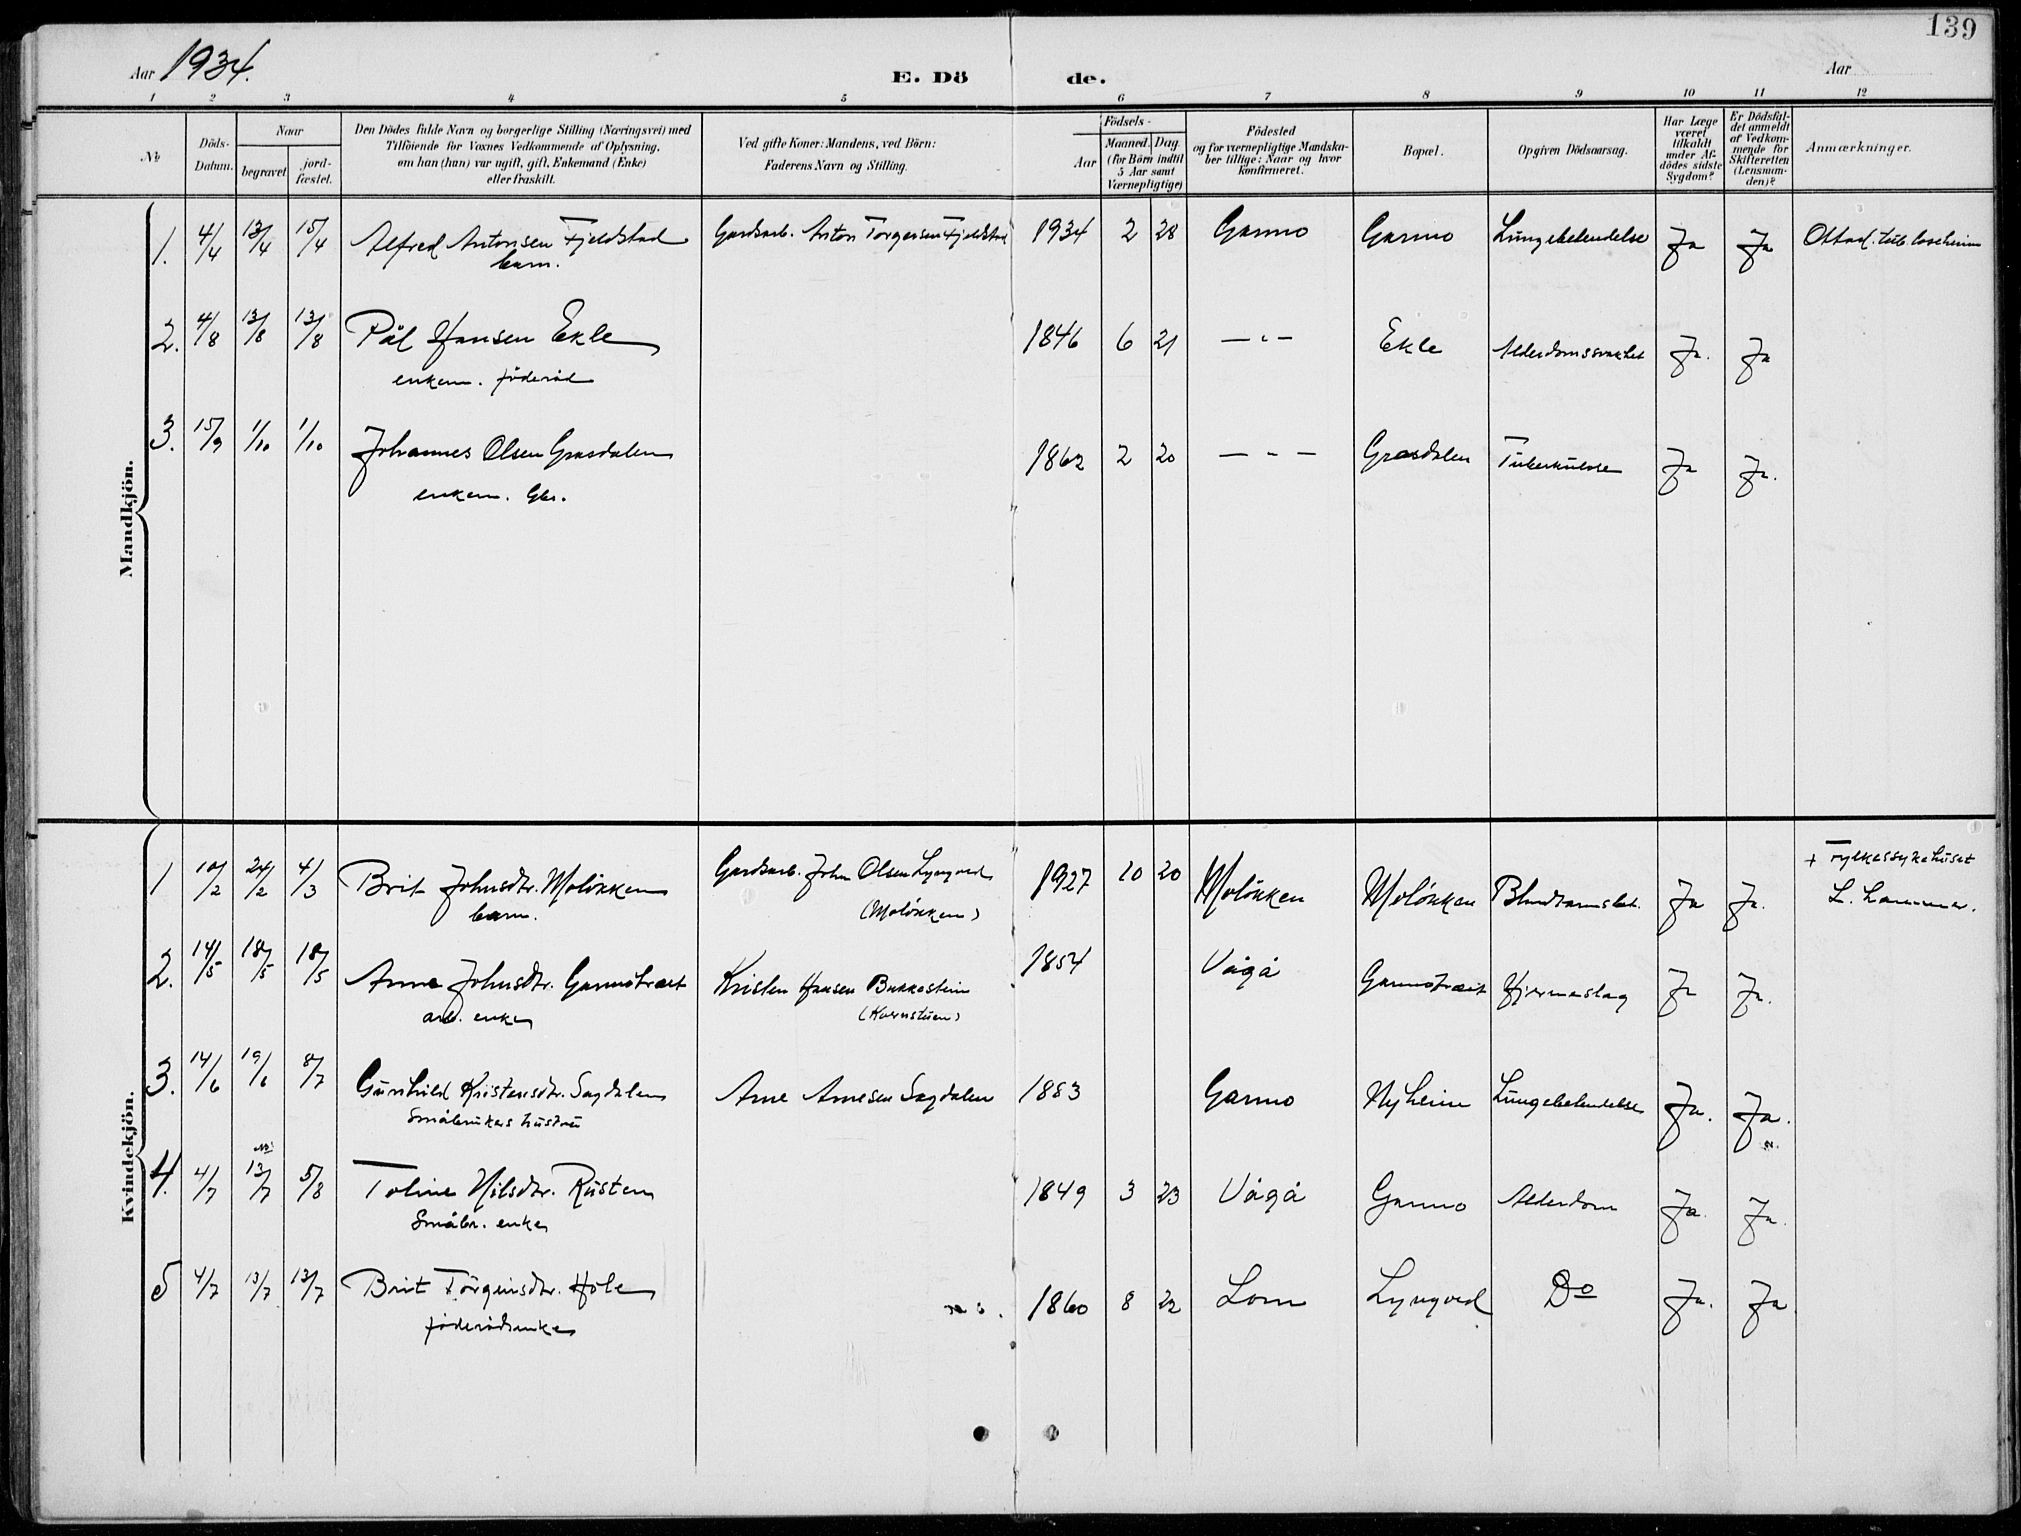 139
Aar 1934.
E. Dö de.
Aar
1 2 3 4 5 6 7 8 9 10 11 12
No
Döds-Datum.
Naar
begravet
jord-fæstet.
Den Dödes fulde Navn og borgerlige Stilling (Næringsvei) med
Tilföiende for Voxnes Vedkommende af Oplysning,
om han (hun) var ugift, gift, Enkemand (Enke)
eller fraskilt.
Ved gifte Koner: Mandens, ved Börn:
Faderens Navn og Stilling.
Födsels-
Aar
Maaned. Dag
(for Börn indtil
5 Aar samt
Værnepligtige)
Födested
og for værnepligtige Mandska-
ber tillige: Naar og hvor
konfirmeret.
Bopæl.
Opgiven Dödsaarsag.
Har Læge
været
tilkaldt
under Af-
dödes sidste
Sygdom?
Er Dödsfal-
det anmeldt
af Vedkom-
mende for
Skifteretten
(Lensman-
den)?
Anmærkninger.
Mandkjön.
1. 4/4 13/4 15/4 Alfred Antonsen Fjeldstad Gardsarb. Anton Torgersen Fjeldstad 1934 2 28 Garmo Garmo Lungebetendelse Ja Ja Ottad. tub.
barn.
2. 4/8 13/8 13/8 Pål Hansen Ekle 1846 6 21 — " — Ekle Alderdomssvakhet Ja. Ja
enkem. föderåd
3. 15/9 1/10 1/10 Johannes Olsen Grasdalen 1862 2 20 — " — Grasdalen Tuberkulose Ja Ja.
enkem. Gbr.
Kvindekjön.
1 10/2 24/2 4/3 Brit Johnsdtr. Molökken Gardsarb. John Olsen Lyngved 1927 10 20 Molökken Molökken Ja Ja. + Fylkessykehuset
barn. (Molökken) L. hammer.
2. 14/5 18/5 18/5 Anne Johnsdtr. Garmotræet Kristen Hansen Bakkestein 1854 Vågå Garmotræet Hjerneslag Ja Ja.
arb. enke (Kvernstuen)
3. 14/6 19/6 8/7 Gunhild Kristensdtr. Sagdalen Arne Arnesen Sagdalen 1883 Garmo Nyheim Lungebetendelse Ja. Ja.
Småbrukers hustru
4. 4/7 13/7 5/8 Toline Nilsdtr. Rusten 1849 3 23 Vågå Garmo Alderdom Ja. Ja.
Småbr. enke
5 4/7 13/7 13/7 Brit Törgersdtr. Hole 1860 8 22 Lom Lyngved Do Ja. Ja
föderådsenke